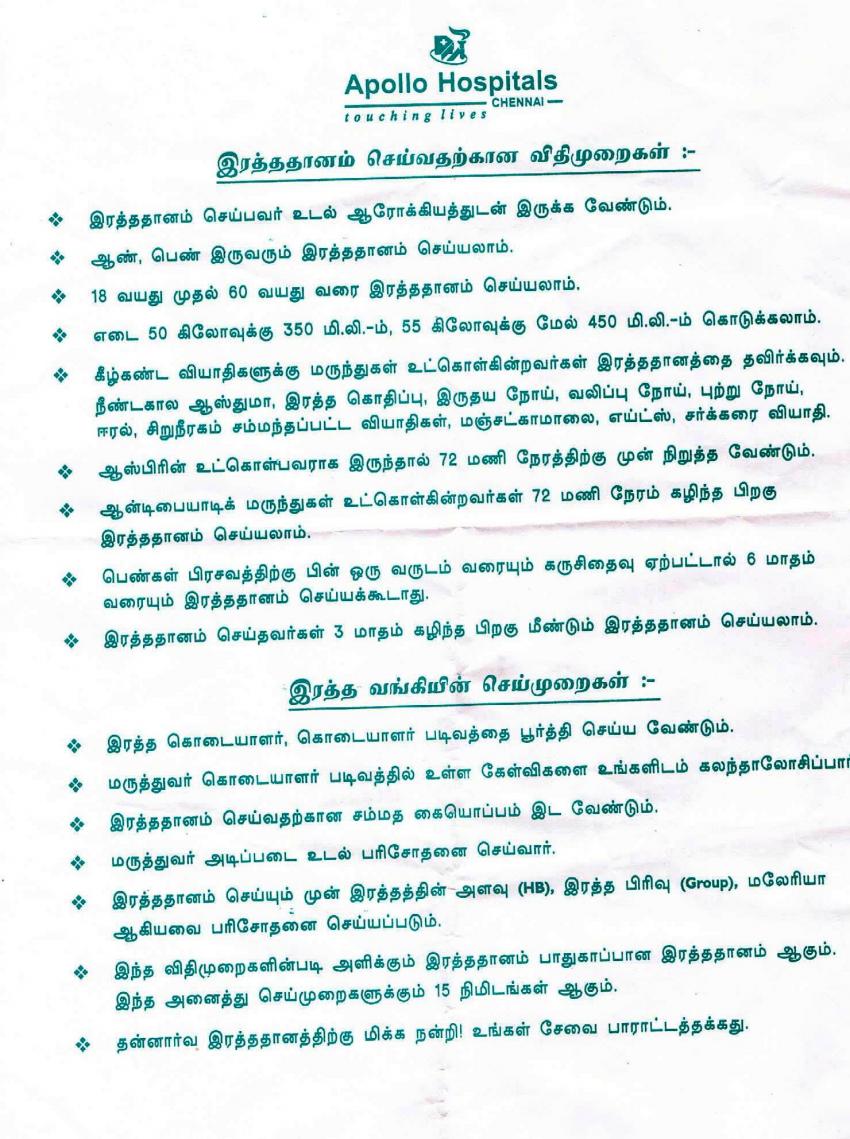 Apollo Hospitals
CHENNAI
touching lives
இரத்ததானம் செய்வதற்கான விதிமுறைகள் :-
❖ இரத்ததானம் செய்பவர் உடல் ஆரோக்கியத்துடன் இருக்க வேண்டும்.
❖ ஆண், பெண் இருவரும் இரத்ததானம் செய்யலாம்.
❖ 18 வயது முதல் 60 வயது வரை இரத்ததானம் செய்யலாம்.
❖ எடை 50 கிலோவுக்கு 350 மி.லி.-ம், 55 கிலோவுக்கு மேல் 450 மி.லி.-ம் கொடுக்கலாம்.
❖ கீழ்கண்ட வியாதிகளுக்கு மருந்துகள் உட்கொள்கின்றவர்கள் இரத்ததானத்தை தவிர்க்கவும்.
நீண்டகால ஆஸ்துமா, இரத்த கொதிப்பு, இருதய நோய், வலிப்பு நோய், புற்று நோய்,
ஈரல், சிறுநீரகம் சம்மந்தப்பட்ட வியாதிகள், மஞ்சட்காமாலை, எய்ட்ஸ், சர்க்கரை வியாதி.
❖ ஆஸ்பிரின் உட்கொள்பவராக இருந்தால் 72 மணி நேரத்திற்கு முன் நிறுத்த வேண்டும்.
❖ ஆன்டிபையாடிக் மருந்துகள் உட்கொள்கின்றவர்கள் 72 மணி நேரம் கழிந்த பிறகு
இரத்ததானம் செய்யலாம்.
❖ பெண்கள் பிரசவத்திற்கு பின் ஒரு வருடம் வரையும் கருசிதைவு ஏற்பட்டால் 6 மாதம்
வரையும் இரத்ததானம் செய்யக்கூடாது.
❖ இரத்ததானம் செய்தவர்கள் 3 மாதம் கழிந்த பிறகு மீண்டும் இரத்ததானம் செய்யலாம்.
இரத்த வங்கியின் செய்முறைகள் :-
❖ இரத்த கொடையாளர், கொடையாளர் படிவத்தை பூர்த்தி செய்ய வேண்டும்.
❖ மருத்துவர் கொடையாளர் படிவத்தில் உள்ள கேள்விகளை உங்களிடம் கலந்தாலோசிப்பார்
❖ இரத்ததானம் செய்வதற்கான சம்மத கையொப்பம் இட வேண்டும்.
❖ மருத்துவர் அடிப்படை உடல் பரிசோதனை செய்வார்.
❖ இரத்ததானம் செய்யும் முன் இரத்தத்தின் அளவு (HB), இரத்த பிரிவு (Group), மலேரியா
ஆகியவை பரிசோதனை செய்யப்படும்.
❖ இந்த விதிமுறைகளின்படி அளிக்கும் இரத்ததானம் பாதுகாப்பான இரத்ததானம் ஆகும்.
இந்த அனைத்து செய்முறைகளுக்கும் 15 நிமிடங்கள் ஆகும்.
❖ தன்னார்வ இரத்ததானத்திற்கு மிக்க நன்றி! உங்கள் சேவை பாராட்டத்தக்கது.